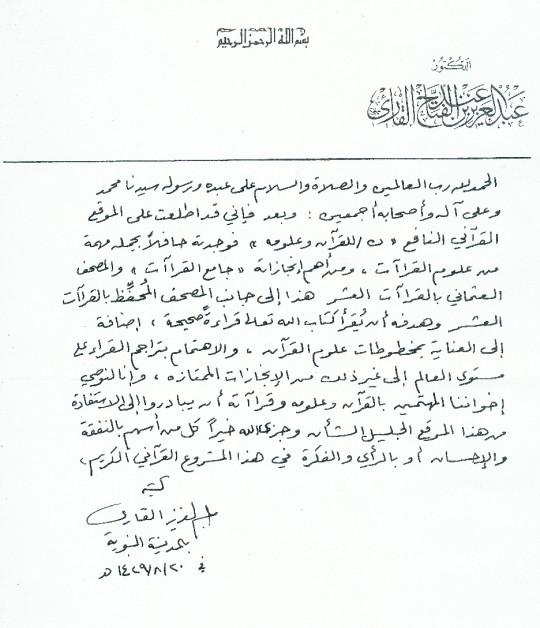 بسم الله الرحمن الرحيم
الدكتور
عبد العزيز بن عبد الفتاح القارئ
الحمد لله رب العالمين والصلاة والسلام على عبده ورسوله سيدنا محمد
وعلى آله وأصحابه أجمعين : وبعد فإني قد اطلعت على الموقع
القرآني النافع « ن/للقرآن وعلومه » فوجدته حافلاً بجملة مهمة
من علوم القراآت ، ومن أهم إنجازاته « جامع القراآت » والمصحف
العثماني بالقراآت العشر هذا إلى جانب المصحف المُحفِّظ بالقراآت
العشر وهدفه أن يُقرأ كتاب الله تعالى قراءةً صحيحة ، إضافة
إلى العناية بمخطوطات علوم القرآن ، والاهتمام بتراجم القراء على
مستوى العالم إلى غير ذلك من الإنجازات الممتازة ، وإنا لنوصي
إخواننا المهتمين بالقرآن وعلومه وقراآته أن يبادروا إلى الاستفادة
من هذا الموقع الجليل الشأن وجزى الله خيراً كل من أسهم بالنفقة
والإحسان أو بالرأي والفكرة في هذا المشروع القرآني الكريم ،
كتبه
عبد العزيز القارئ
بالمدينة النبوية
في ١٤٢٩/٨/٢٠ هـ